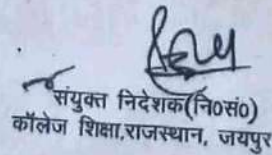 संयुक्त निदेशक(नि०सं०)
कॉलेज शिक्षा,राजस्थान, जयपुर